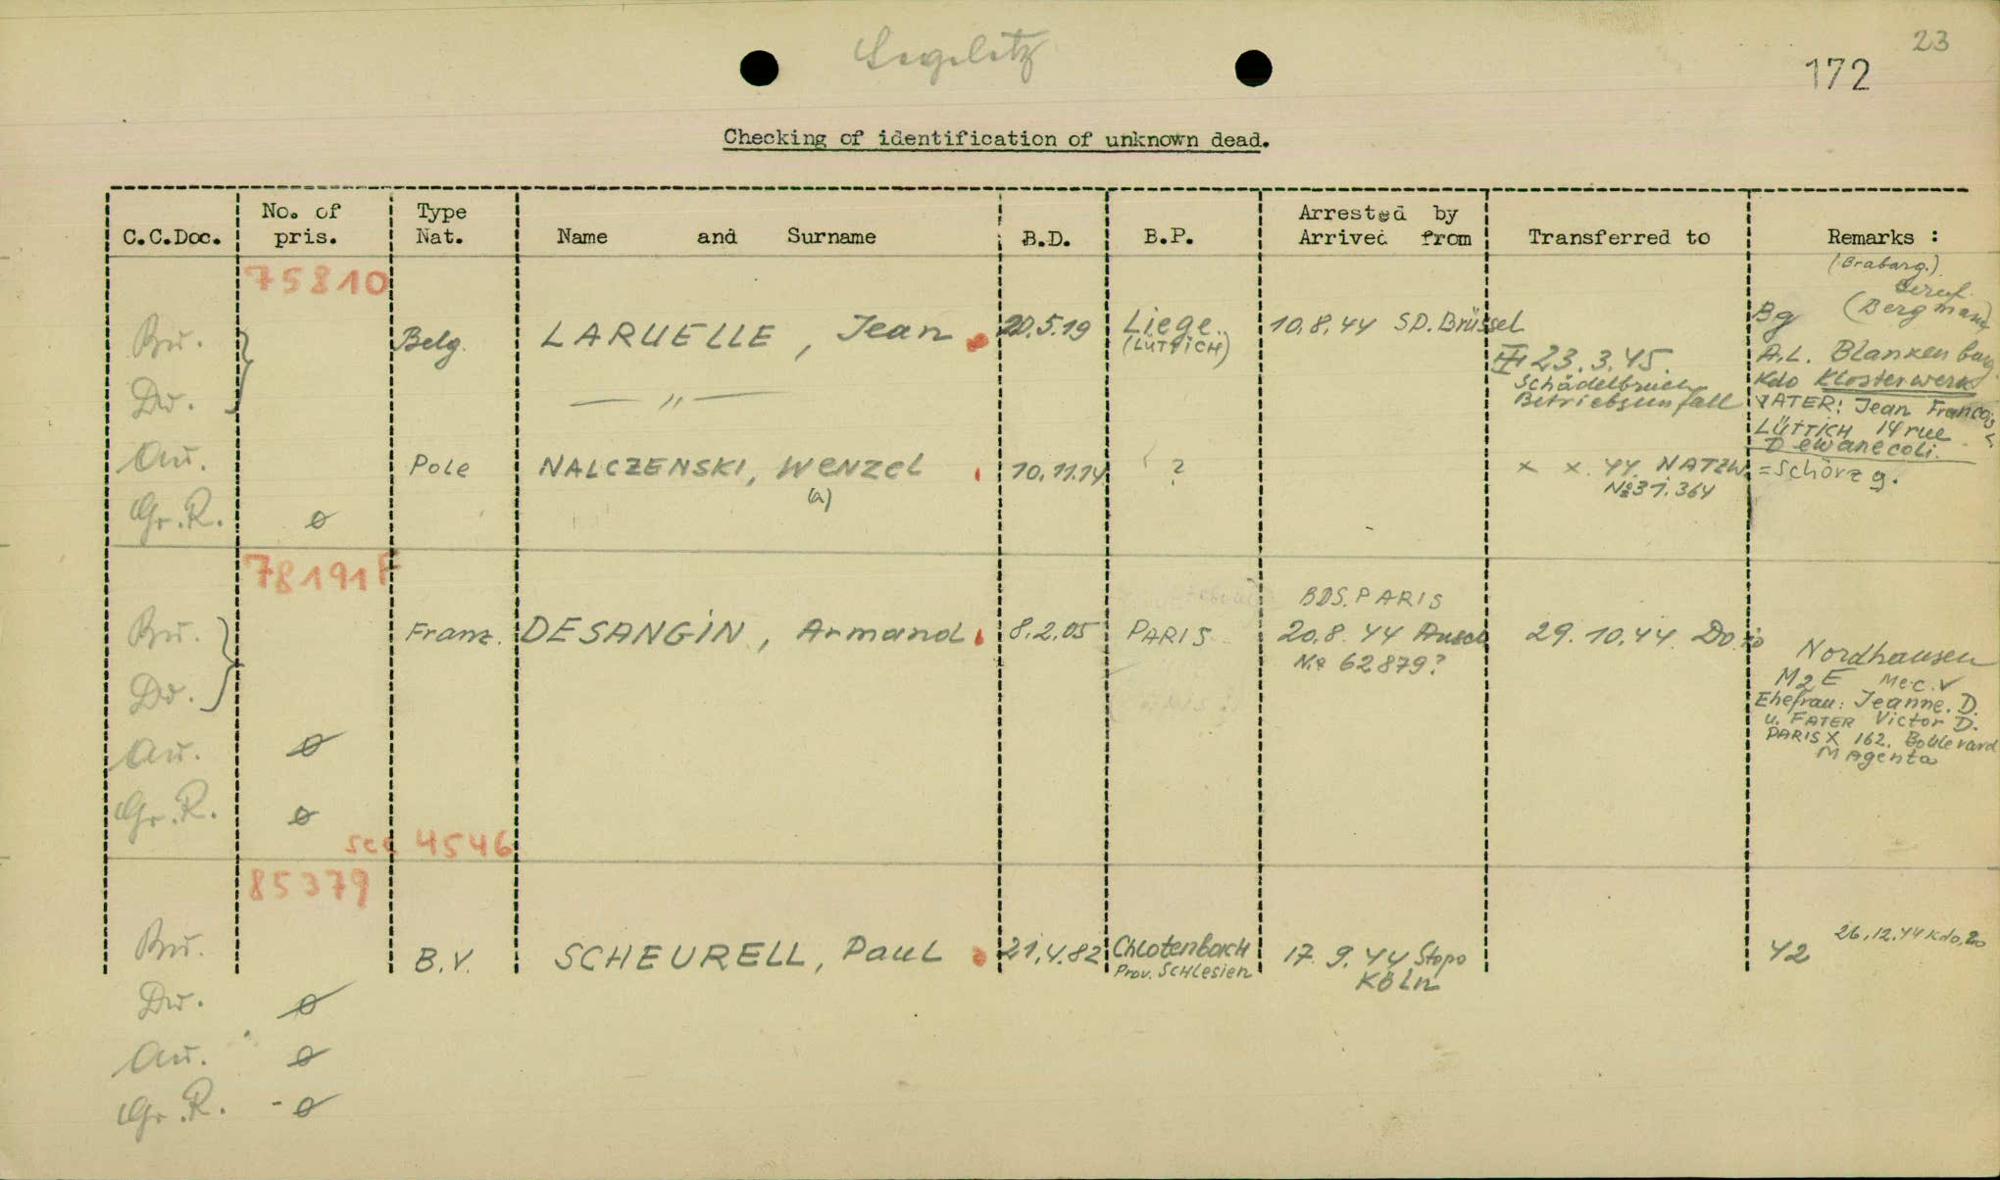 23
172
Checking of identification of unknown dead.
C.C.Doc. No. of pris. Type Nat. Name and Surname B.D. B.P. Arrested by Arrived from Transferred to Remarks :
75810
Bu. Belg. LARUELLE, Jean 20.5.19 Liege.. (LÜTTICH) 10.8.44 SD. Brüssel
23.3.45.
Schädelbruch
Betriebsunfall
Beruf.
Bg (Bergmann)
A.L. Blankenburg
Kdo Klosterwerk
VATER: Jean Francois L
LÜTTICH 14 rue
Do. — " —
Au. Pole NALCZENSKI, Wenzel (a) 10.11.14 ? x x. 44. NATZW. = Schörzg.
№ 31.364
Gr.R. ø
78191 F
BDS. PARIS
Bu. Franz. DESANGIN, Armand 8.2.05 PARIS 20.8.44 29.10.44. Do
№ 62879?
Do.
Nordhausen
Mec. V
Ehefrau: Jeanne. D.
u. FATER Victor D.
PARIS X 162. Boulevard
MAgenta
Au. ø
Gr.R. ø
see 4546
85379
Bu. B.V. SCHEURELL, Paul 21.4.82 Chlotenbach 17.9.44 Stapo 42 26.12.44 Kdo.
Prov. Schlesien KÖLn
Do. ø
Au. ø
Gr.R. - ø